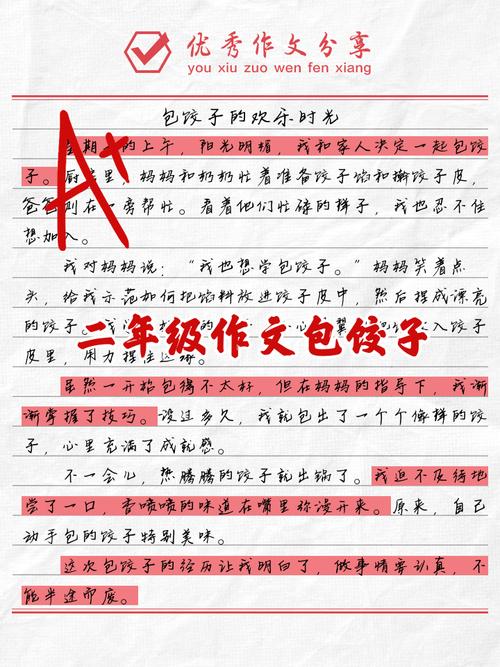 优秀作文分享
you xiu zuo wen fen xiang
包饺子的欢乐时光
A+
星期 的上午，阳光明媚，我和家人决定一起包饺
子。厨 里，妈妈和奶奶忙着准备饺子馅和擀饺子皮，
爸爸则在一旁帮忙。看着他们忙碌的样子，我也忍不住
想加入。
我对妈妈说：“我也想学包饺子。”妈妈笑着点
头，给我示范如何把馅料放进饺子皮中，然后捏成漂亮
的饺子。我 的 翼 入饺子
二年级作文包饺子
皮里，用力捏住边
虽然一开始包得不太好，但在妈妈的指导下，我渐
渐掌握了技巧。没过多久，我就包出了一个个像样的饺
子，心里充满了成就感。
不一会儿，热腾腾的饺子就出锅了。我迫不及待地
尝了一口，香喷喷的味道在嘴里弥漫开来。原来，自己
动手包的饺子特别美味。
这次包饺子的经历让我明白了，做事情要认真，不
能半途而废。